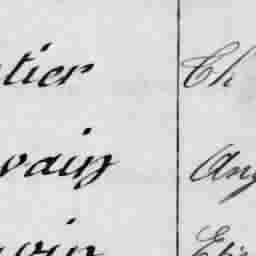 tier Ch
vain Ang
vin Eli